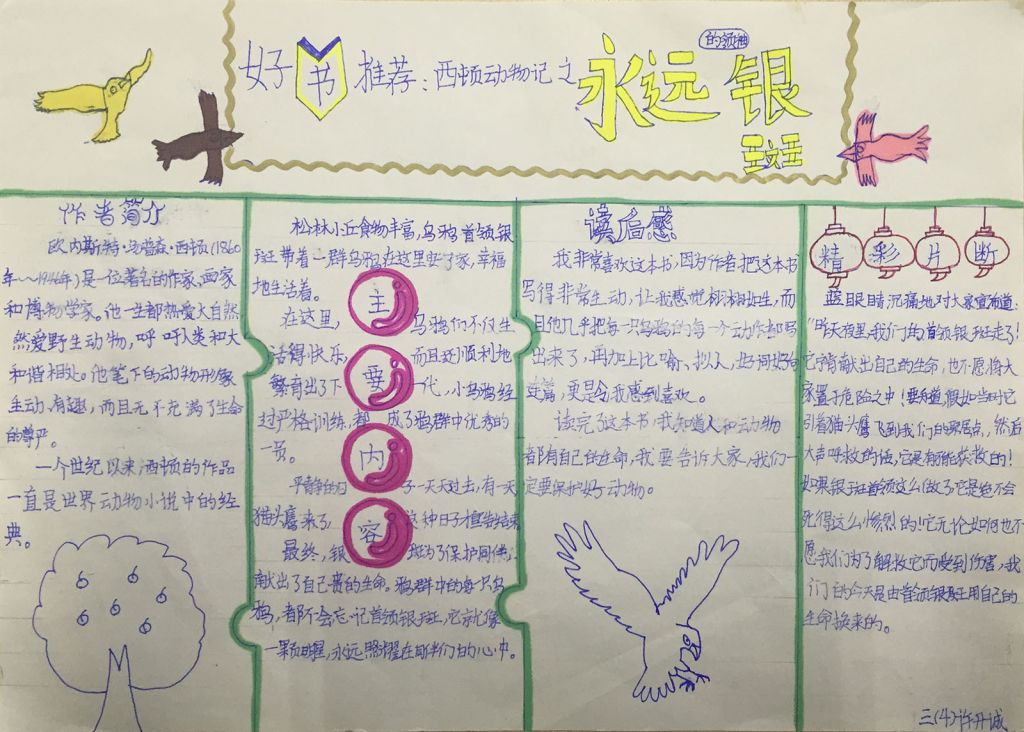 好书推荐：西顿动物记之永远的领袖银斑
作者简介
欧内斯特·马普森·西顿（1860
年~~1946年）是一位著名的作家,画家
和博物学家。他一生都热爱大自然
然爱野生动物,呼吁人类和大
和谐相处。他笔下的动物形象
生动有趣,而且无不充满了生命
的尊严。
一个世纪以来,西顿的作品
一直是世界动物小说中的经
典。
主要内容
松林小丘食物丰富,乌鸦首领银
斑带着一群乌鸦在这里安了家,幸福
地生活着。
在这里,乌鸦们不仅生
活得快乐,而且还顺利地
繁育出了下一代,小乌鸦经
过严格训练,都成了鸦群中优秀的
一员。
平静的日子一天天过去,有一天
猫头鹰来了,这种日子宣告结束
最终,银斑为了保护同伴,
献出了自己贵的生命。鸦群中的每一只乌
鸦,都不会忘记首领银斑,它就像
一颗明星,永远照耀在同伴们的心中。
读后感
我非常喜欢这本书,因为作者把这本书
写得非常生动,让我感觉栩栩如生,而
且他几乎把每一只乌鸦的每一个动作都写
出来了,再加上比喻、拟人,好词好句
更是令我感到喜欢。
读完了这本书,我知道人和动物
都有自己的生命,我要告诉大家,我们一
定要保护好动物。
精彩片断
蓝眼睛沉痛地对大家宣布道:
“昨天夜里,我们的首领银斑走了!
它宁肯献出自己的生命,也不愿将大
家置于危险之中!要知道,假如当时它
引着猫头鹰飞到我们的聚居点,然后
大声呼救的话,它是有可能获救的!
如果银斑首领这么做了,它是绝不会
死得这么惨烈的!它无论如何也不
愿我们为了解救它而受到伤害,我
们的今天是由首领银斑用自己的
生命换来的。
三(4)许丹诚